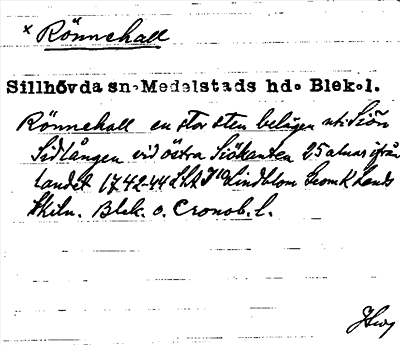 × Rönnehall
Sillhövda sn. Medelstads hd. Blek. l.
Rönnehall en stor sten belägen uti Siön
Sidlången vid östra Siökanten 25 alnar ifrån
landet 1742-44 Lindblom Geom K Lands
Skiln. Blek. o. Cronob. l.